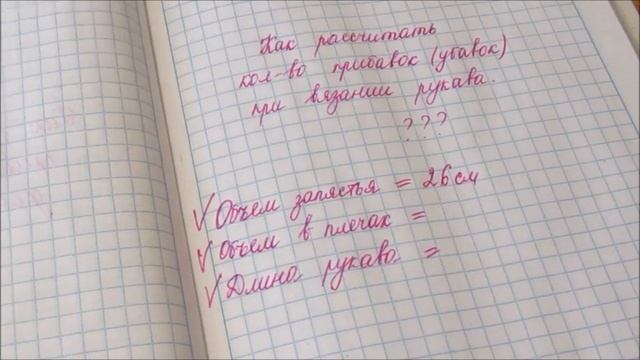 Как рассчитать
кол-во прибавок (убавок)
при вязании рукава.
???
√ Объем запястья = 26 см
√ Объем в плечах =
√ Длина рукава =